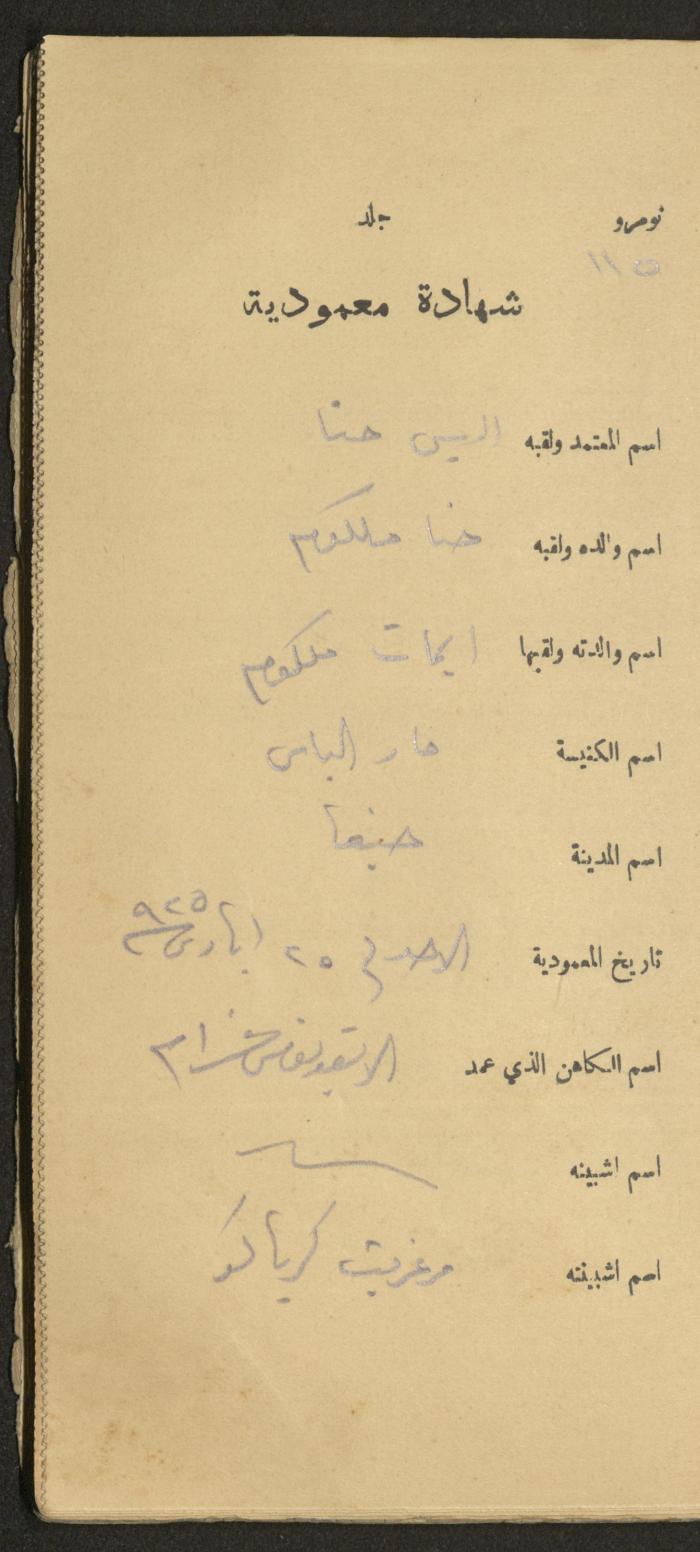 نومرو جلد
١١٥
شهادة معمودية
اسم المعتمد ولقبه اليس حنا
اسم والده ولقبه حنا ملكوم
اسم والدته ولقبها ملكوم
اسم الكنيسة مار الياس
اسم المدينة حيفا
تاريخ المعمودية الاحد في ٢٥ ايار سنة ٩٢٥
اسم الكاهن الذي عمد
اسم اشبينه
اسم اشبينته مرغريت كرياكو